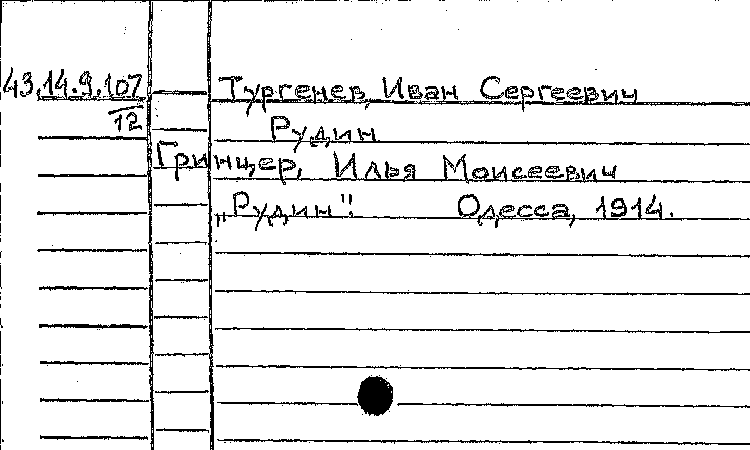 43.14.9.107 Тургенев, Иван Сергеевич
12 Рудин
Гринцер, Илья Моисеевич
„Рудин". Одесса, 1914.